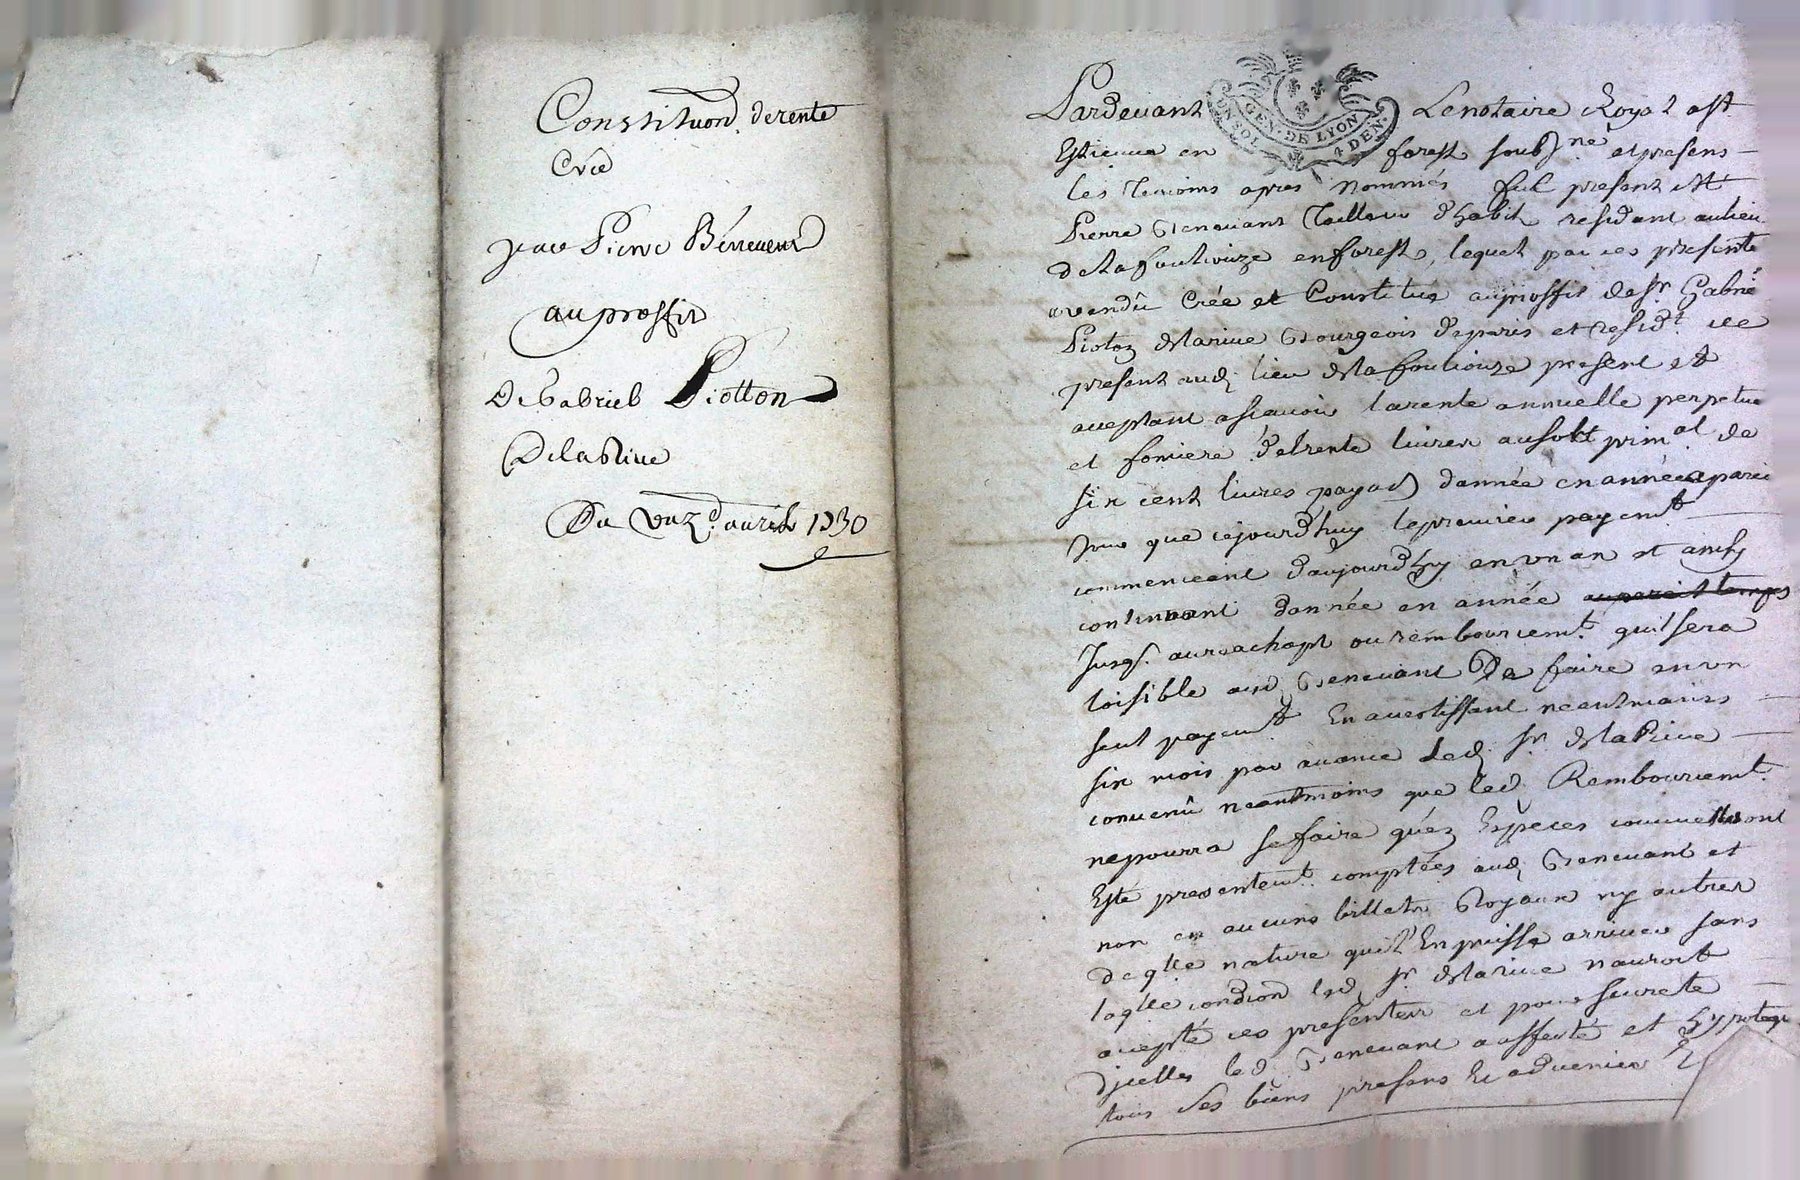 Constitu͠on. de rente
Crée
par Pierre Bénevent
au proffit
De Gabriel Piotton
Delarive
Du unz.e d'auril 1730
GEN. DE LYON
UN SOL 4 DEN.
Pardeuant Le notaire Royal a st
Estienne en forest soubs.né et presens
les temoins apres nommés fut present Me
Pierre Beneuant Tailleur d'habit residant au lieu
de la fouliouze en forest, lequel par ces presente
a vendû Crée et Constitué au proffit de Sr. Gabriel
Pioton delariue Bourgeois de paris et resid.t de
present aud. lieu de la fouliouze present et
aceptant ascauoir la rente annuelle perpetue
et fonciere de trente liures au sort prim.al de
six cent liures payab. dannée en année a pareil
Jour que cejourdhuy le premier payem.t
commenceant daujourdhuy en un an et ainsy
continuant dannée en année au pareil temps
Jusq. au rachapt ou rembourcem.t quil sera
loisible aud. Beneuant De faire en un
seul payem.t En auertissant neantmoins
six mois par auance led. Sr. delaRiue
conuenû neantmoins que led. Rembourcem.t
ne pourra se faire qu'en Especes comme elles ont
Esté presentem.t comptées aud. Beneuant et
non en aucuns billets Royaux ny autres
de qlle nature quil En puisse arriuer sans
laqlle condi͠on led. Sr. delariue n'auroit
acepté ces presentes et pour seureté
dycelles led. Beneuant a affecté et hypoteque
tous ses biens presens Et aduenir Et